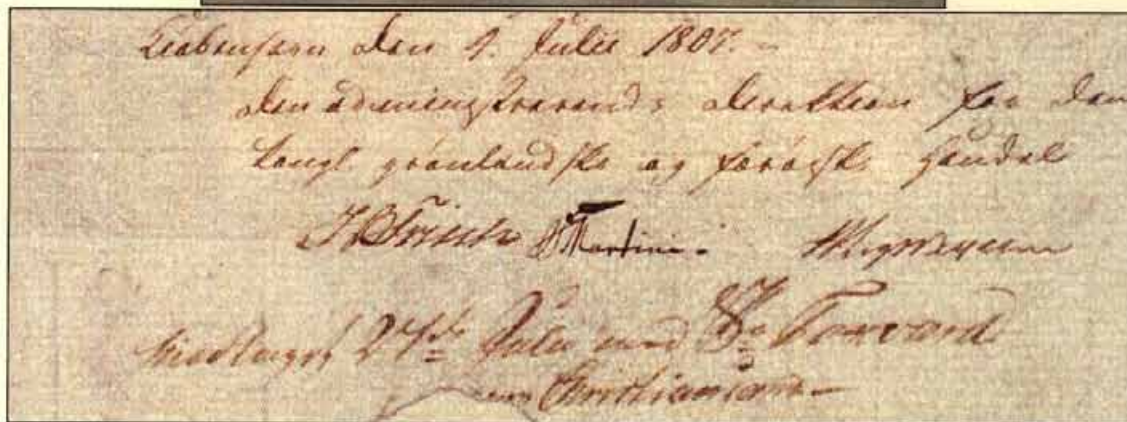 Kiøbenhavn den 4. Julii 1807.
den administrerende Direktion for den
kongl. grønlandske og færøiske Handel
Frisch Martini.
27de Julii med
Christiansand